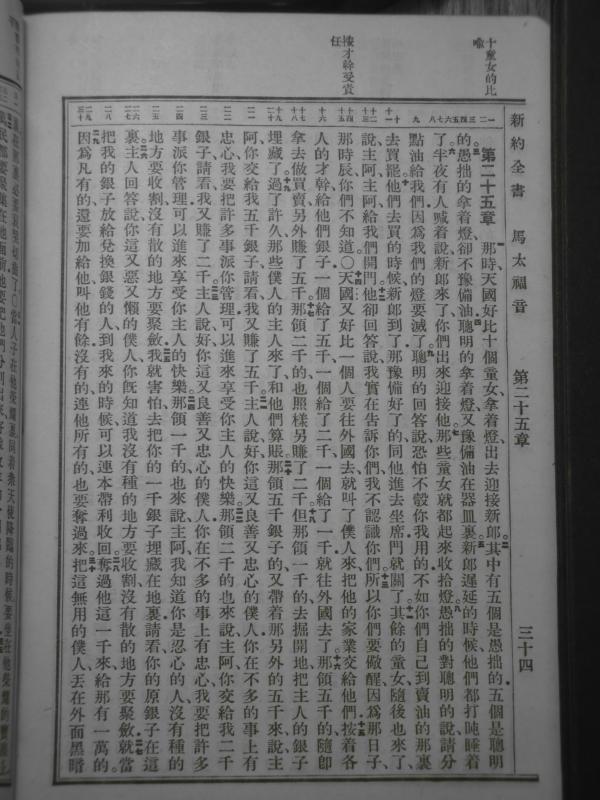 十童女的比
喩
按才幹受責
任
新約全書 馬太福音 第二十五章 三十四
第二十五章 那時天國好比十個童女、拿着燈出去迎接新郎。其中有五個是愚拙的五個是聰明
的愚拙的拿着燈卻不豫備油聰明的拿着燈又豫備油在器皿裏新郎遲延的時候他們都打盹睡着
了半夜有人喊着說新郎來了你們出來迎接他那些童女就都起來收拾燈愚拙的對聰明的說請分
點油給我們因爲我們的燈要滅了聰明的回答說恐怕不彀你我用的不如你們自己到賣油的那裏
去買罷他們去買的時候新郎到了那豫備好了的同他進去坐席門就關了其餘的童女隨後也來了、
說主阿主阿給我們開門他卻回答說我實在告訴你們我不認識你們所以你們要儆醒因爲那日子、
那時辰你們不知道〇天國又好比一個人要往外國去就叫了僕人來把他的家業交給他們按着各
人的才幹給他們銀子一個給了五千一個給了二千一個給了一千就往外國去了那領五千的隨卽
拿去做買賣另外賺了五千那領二千的也照樣另賺了二千但那領一千的去掘開地把主人的銀子
埋藏了過了許久那些僕人的主人來了和他們算賬那領五千銀子的又帶着那另外的五千來說主
阿你交給我五千銀子請看我又賺了五千主人說好你這又良善又忠心的僕人你在不多的事上有
忠心我要把許多事派你管理可以進來享受你主人的快樂那領二千的也來說主阿你交給我二千
銀子請看我又賺了二千主人說好你這又良善又忠心的僕人你在不多的事上有忠心我要把許多
事派你管理可以進來享受你主人的快樂那領一千的也來說主阿我知道你是忍心的人沒有種的
地方要收割沒有散的地方要聚斂我就害怕去把你的一千銀子埋藏在地裏請看你的原銀子在這
裏主人回答說你這又惡又懶的僕人你旣知道我沒有種的地方要收割沒有散的地方要聚斂就當
把我的銀子放給兌換銀錢的人到我來的時候可以連本帶利收回奪過他這一千來給那有一萬的。
因爲凡有的還要加給他叫他有餘沒有的連他所有的也要奪過來把這無用的僕人丟在外面黑暗